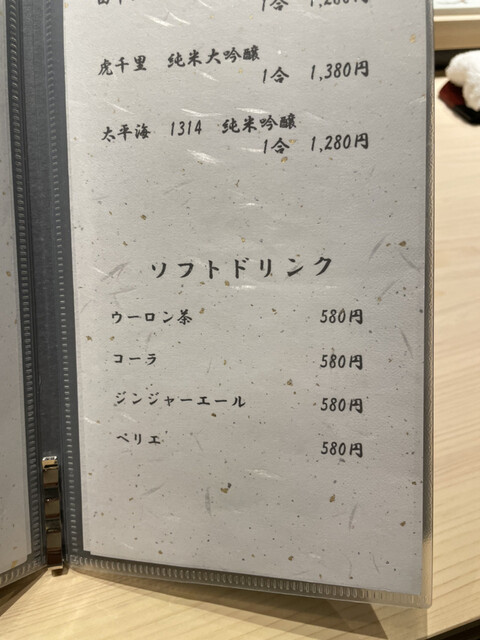 1合 1,280円
虎千里 純米大吟醸
1合 1,380円
太平海 1314 純米吟醸
1合 1,280円
ソフトドリンク
ウーロン茶 580円
コーラ 580円
ジンジャーエール 580円
ペリエ 580円